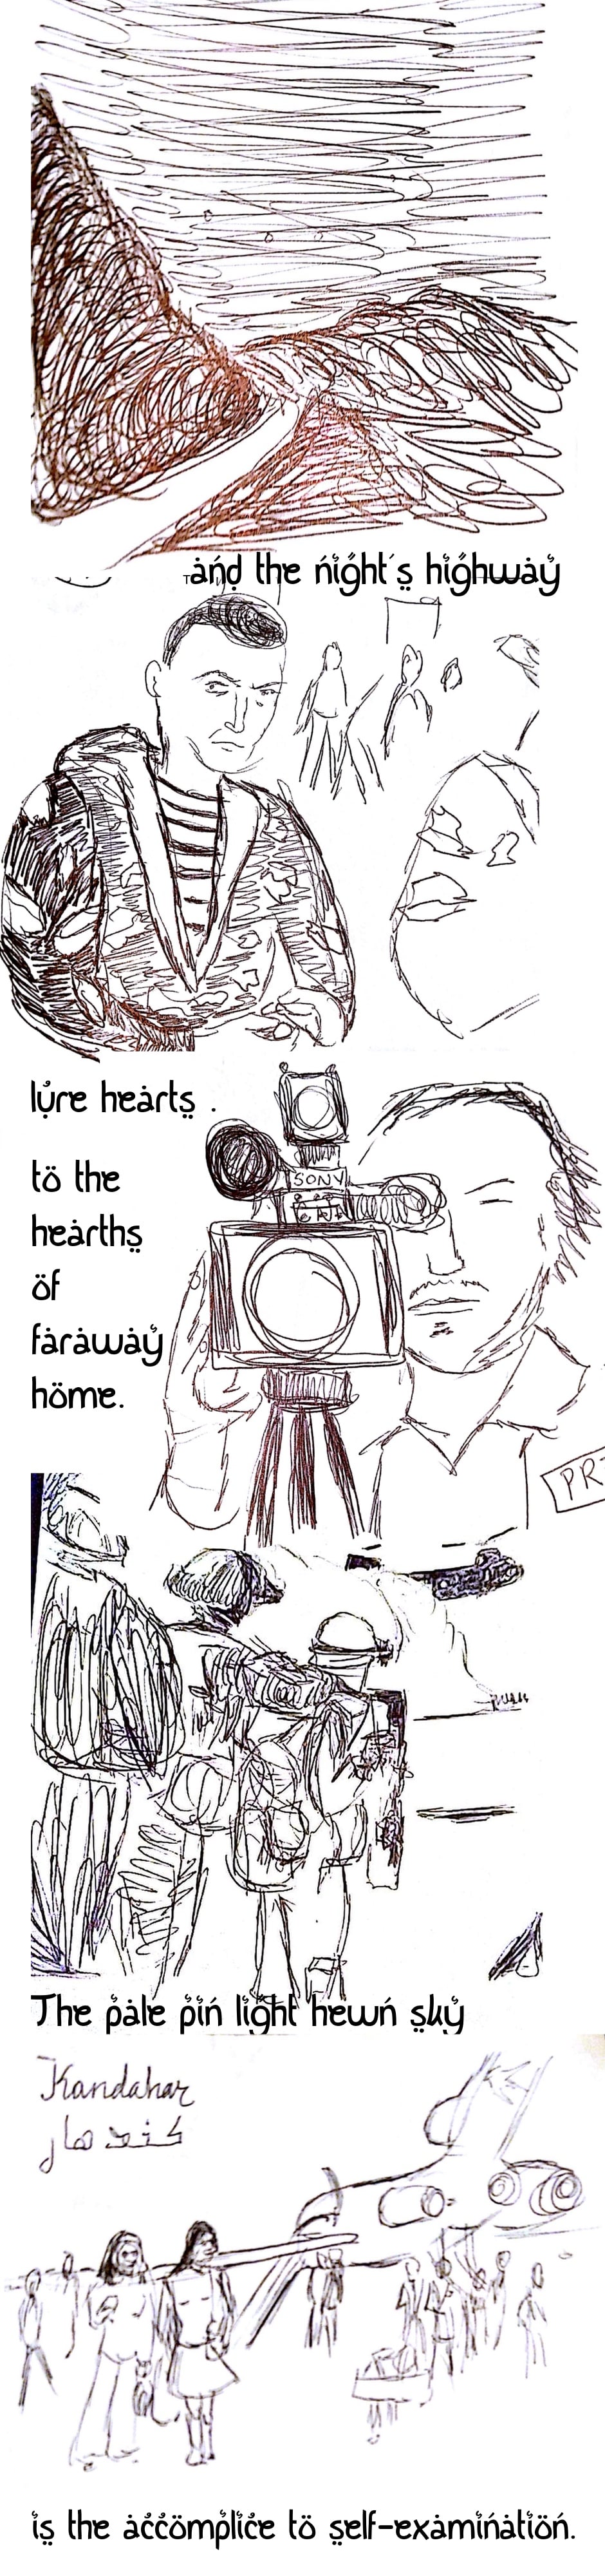 and the night's highway
lure hearts .
to the
hearths
of
faraway
home.
SONY
PR
The pale pin light hewn sky
Kandahar
كندهار
is the accomplice to self-examination.